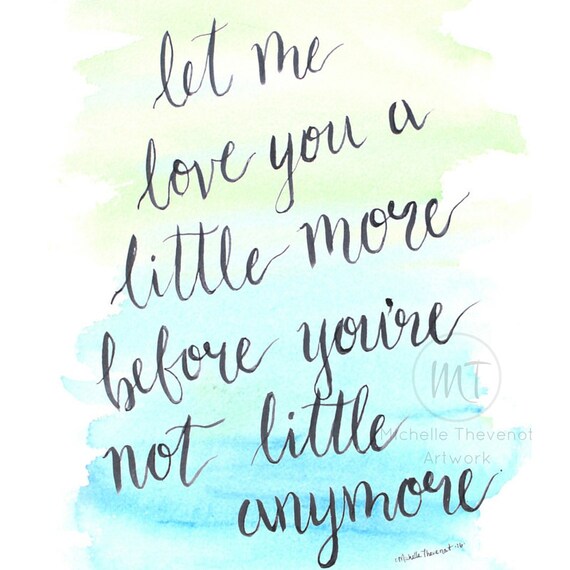 let me
love you a
little more
before you're
not little
anymore
MT
Michelle Thevenot
Artwork
Michelle Thevenot '16